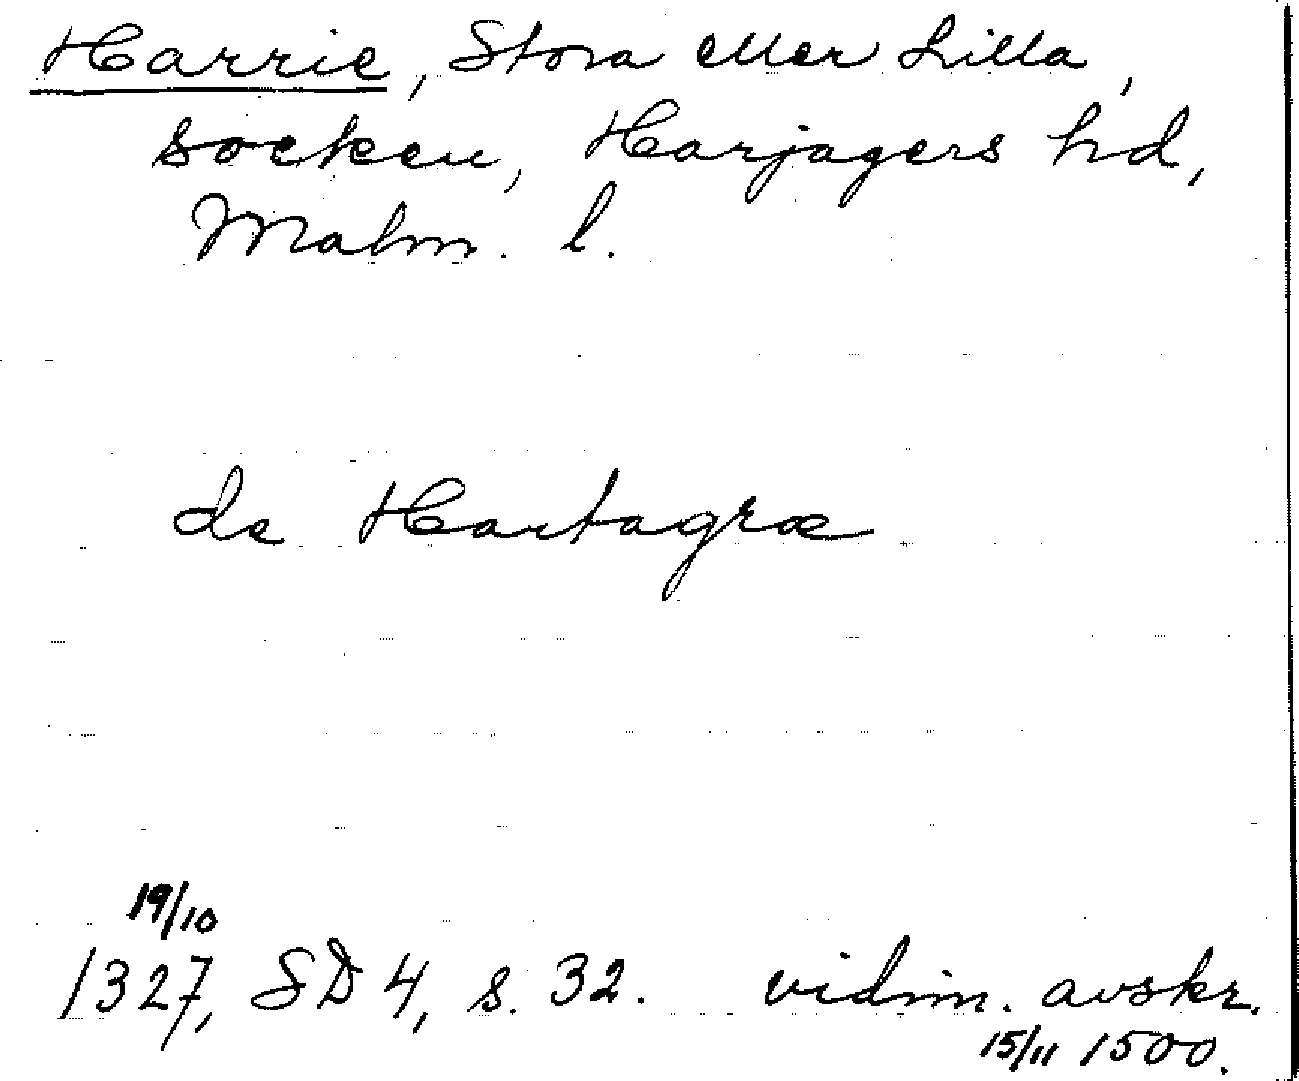 Harrie, Stora eller Lilla,
socken, Harjagers hd,
Malm. l.
de Hartagræ
19/10
1327, SD 4, s. 32. vidim. avskr.
15/11 1500.